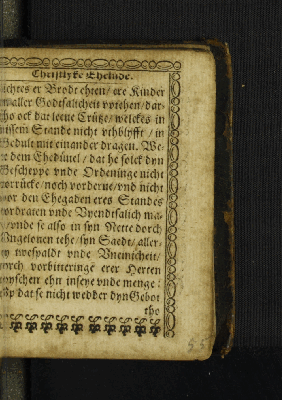 Christlyke Ehelude.
ichtes er Brodt ehren/ ere Kinder
aller Godtsalicheit vptehen/ dar-
tho ock dat leeue Crütze/ welckes in
Stande nicht vthblyfft / in
Gedult mit einander dragen. We-
re dem Eheduuel / dat he solck dyn
Gescheppe vnde Ordeninge nicht
vorrücke/ noch vorderue/ vnd nicht
vor den Ehegaden eres Standes
vordraten vnde Vyendtsalich ma-
/ vnde se also in syn Nette dorch
Angelonen tehe/ syn Saedt/ aller-
ley twespaldt vnde Vneinicheit/
dorch vorbitteringe erer Herten
twyschen ehn inseye vnde menge:
Vp dat se nicht wedder dyn Gebot
tho
55